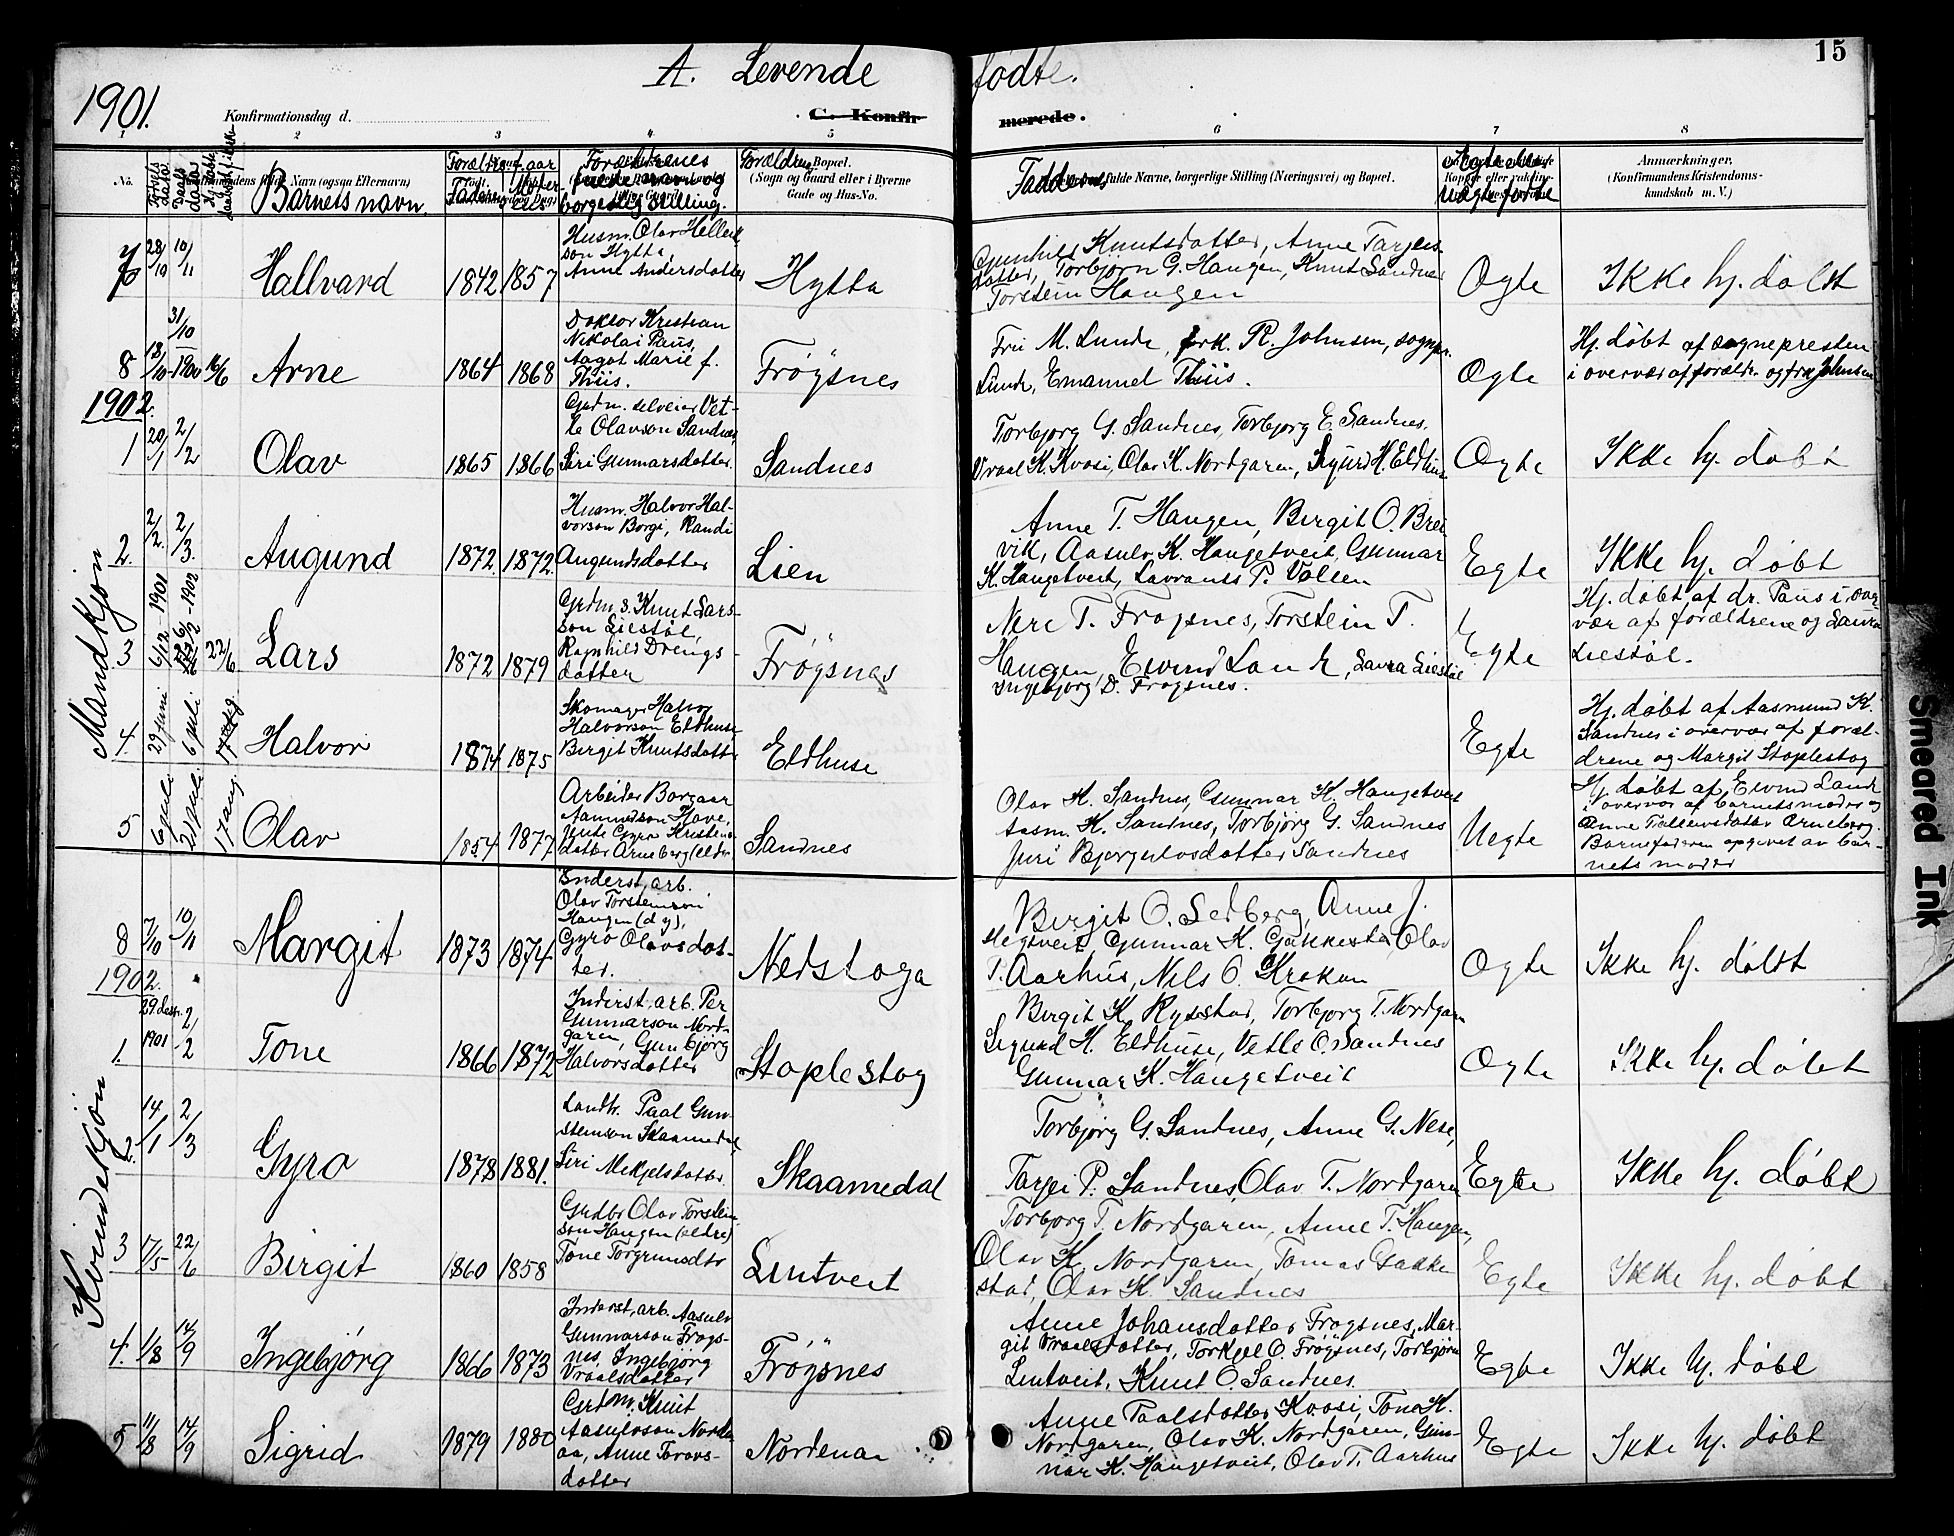 15
A. Levende fødte.
1901.
Konfirmationsdag d.
C. Konfirmerede.
1 2 3 4 5 6 7 8
No.
Barnets navn.
Forældrenes
Bopæl.
(Sogn og Gaard eller i Byerne
Gade og Hus-No.
Faddernes fulde Navne, borgerlige Stilling (Næringsvei) og Bopæl.
Anmærkninger.
(Konfirmandens Kristendoms-
kundskab m. V.)
Mandkjøn
7 28/10 10/11 Hallvard 1842 1857
Husm. Olav Hellek
son Hytta,
Anne Andersdatter
Hytta
Gunhild Knutsdatter, Anne Targeis
datter, Torbjörn G. Haugen, Knut Sandnes
Torstein Haugen
Ogte
Ikke hj. døbt
8 18/10 31/10 1900 16/6 Arne 1864 1868
Doktor Kristian
Nikolai Paus,
Aagot Marie f.
Thiis.
Frøysnes
Fru M. Lunde, frk. R. Johnsen, sognepr.
Lunde, Emanuel Thiis.
Ogte
Hj. døbt af sognepresten
i overvær af forældr. og frk Johnsen
1902.
1 20/1 2/2 Olav 1865 1866
Grdm. selveier Vet-
le Olavson Sandnes,
Siri Gunnarsdatter.
Sandnes
Torbjorg G. Sandnes, Torbjorg E. Sandnes,
Vraal K. Kvosi, Olav K. Nordgaren, Sigurd H. Eldhus
Ogte
Ikke hj. døbt
2. 2/2. 2/3. Augund 1872 1872.
Husm. Halvor Hal-
vorson Borgi, Randi
Augundsdatter
Lien
Anne T. Haugen, Birgit O. Brei
vik, Aasulv K. Haugetveit, Gunnar
K. Haugetveit, Lavrants P. Valen
Egte
Ikke hj. døbt
3 6/12 1901 22/6 Lars 1872 1879
Grdm. s. Knut Lars-
son Liestøl,
Ragnhild Drengs-
datter
Frøysnes
Neri T. Frøysnes, Torstein T.
Haugen, Eivind Lande, Laura Liestøl
Ingebjorg D. Frøysnes.
Egte
Hj. døbt af dr. Paus i over
vær af forældrene og Laura
Liestøl.
4. 29 juni 6 juli 17 aug Halvor 1874 1875
Skomager Halvor
Halvorson Eldhuse
Birgit Knutsdatter
Eldhuse
Egte
Hj. døbt af Aasmund K.
Sandnes i overvær af foræl-
drene og Margit Stoplestog
5 6 juli 21 juli 17 aug Olav 1854 1877
Arbeider Borgaar
Aanundson Hove,
Jente Gyro Kristens
datter Arneberg (eldre
Sandnes
Olav K. Sandnes, Gunnar K. Haugetveit
Aasm. K. Sandnes, Torbjörg G. Sandnes
Juri Bjorgulvsdatter Sandnes
Uegte
Hj. døbt af Eivind Lande
i overvær af barnets moder og
Anne Tallevsdatter Arneberg.
Barnefaderen opgivet av bar-
nets moder
Kvindekjøn
8 7/10 10/11 Margit 1873 1874
Inderst, arb.
Olav Torsteinson
Haugen (d y),
Gyro Olavsdat-
ter.
Nedstoga
Birgit O. Sedberg, Anne J.
Hegtveit, Gunnar K. Gakkestad Olav
T. Aarhus, Nils O. Krokan
Ogte
Ikke hj. døbt
1902.
1. 29 des. 1901 2/2 Tone 1866 1872
Inderst. arb. Per
Gunnarson Nord-
garen, Gunbjörg
Halvorsdatter
Stoplestog
Birgit K. Rysstad, Torbjorg T. Nordgaren
Sigurd H. Eldhuse, Vetle O. Sandnes
Gunnar K. Haugetveit
Ogte
Ikke hj. døbt
2. 14/1 2/3 Gyro 1878 1881.
Landh. Paal Gun-
steinson Skaamedal
Siri Mikjelsdatter.
Skaamedal
Torbjörg G. Sandnes, Anne G. Nese,
Tarjei P. Sandnes, Olav T. Nordgaren
Egte
Ikke hj. døbt
3 17/5 22/6 Birgit 1860 1858
Grdbr Olav Torstein
son Haugen (eldre)
Tone Torgrimsdtr
Lintveit
Torbjorg T. Nordgaren, Anne T. Haugen,
Olav K. Nordgaren, Tomas Gakke
stad, Olav K. Sandnes
Egte
Ikke hj. døbt
4. 1/8 14/9 Ingebjörg 1866 1873
Inderst, arb. Aasulv
Gunnarson Frøys-
nes, Ingebjörg
Vraalsdatter
Frøysnes
Anne Johansdatter Frøysnes, Mar-
git Vraalsdatter, Torkjel O. Frøysnes, Torbjörn
Lintveit, Knut O. Sandnes.
Egte
Ikke hj. døbt
5 11/8 14/9 Sigrid 1879 1880
Grdm. Knut
Aasulvson Norden
aa, Anne Torovs-
datter
Nordenaa
Anne Paalsdatter Kvosi, Tone K.
Nordgaren, Olav K. Nordgaren, Gun-
nar K. Haugetveit, Olav T. Aarhus
Egte
Ikke hj. døbt
Smeared Ink